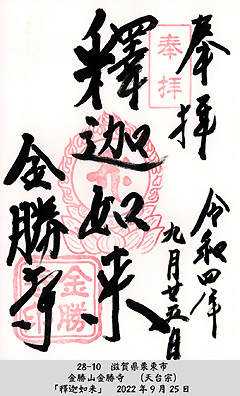 奉拝
奉拝
釋迦如来
金勝寺
令和四年
九月廿五日
金勝
印
28-10 滋賀県栗東市
金勝山金勝寺 (天台宗)
「釋迦如来」 2022年9月25日